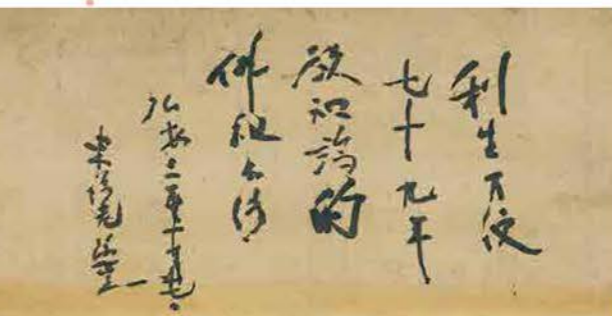 利生方便
七十九年
欲知端的
佛祖不傳
弘安三年十月十七日
東福老珍重